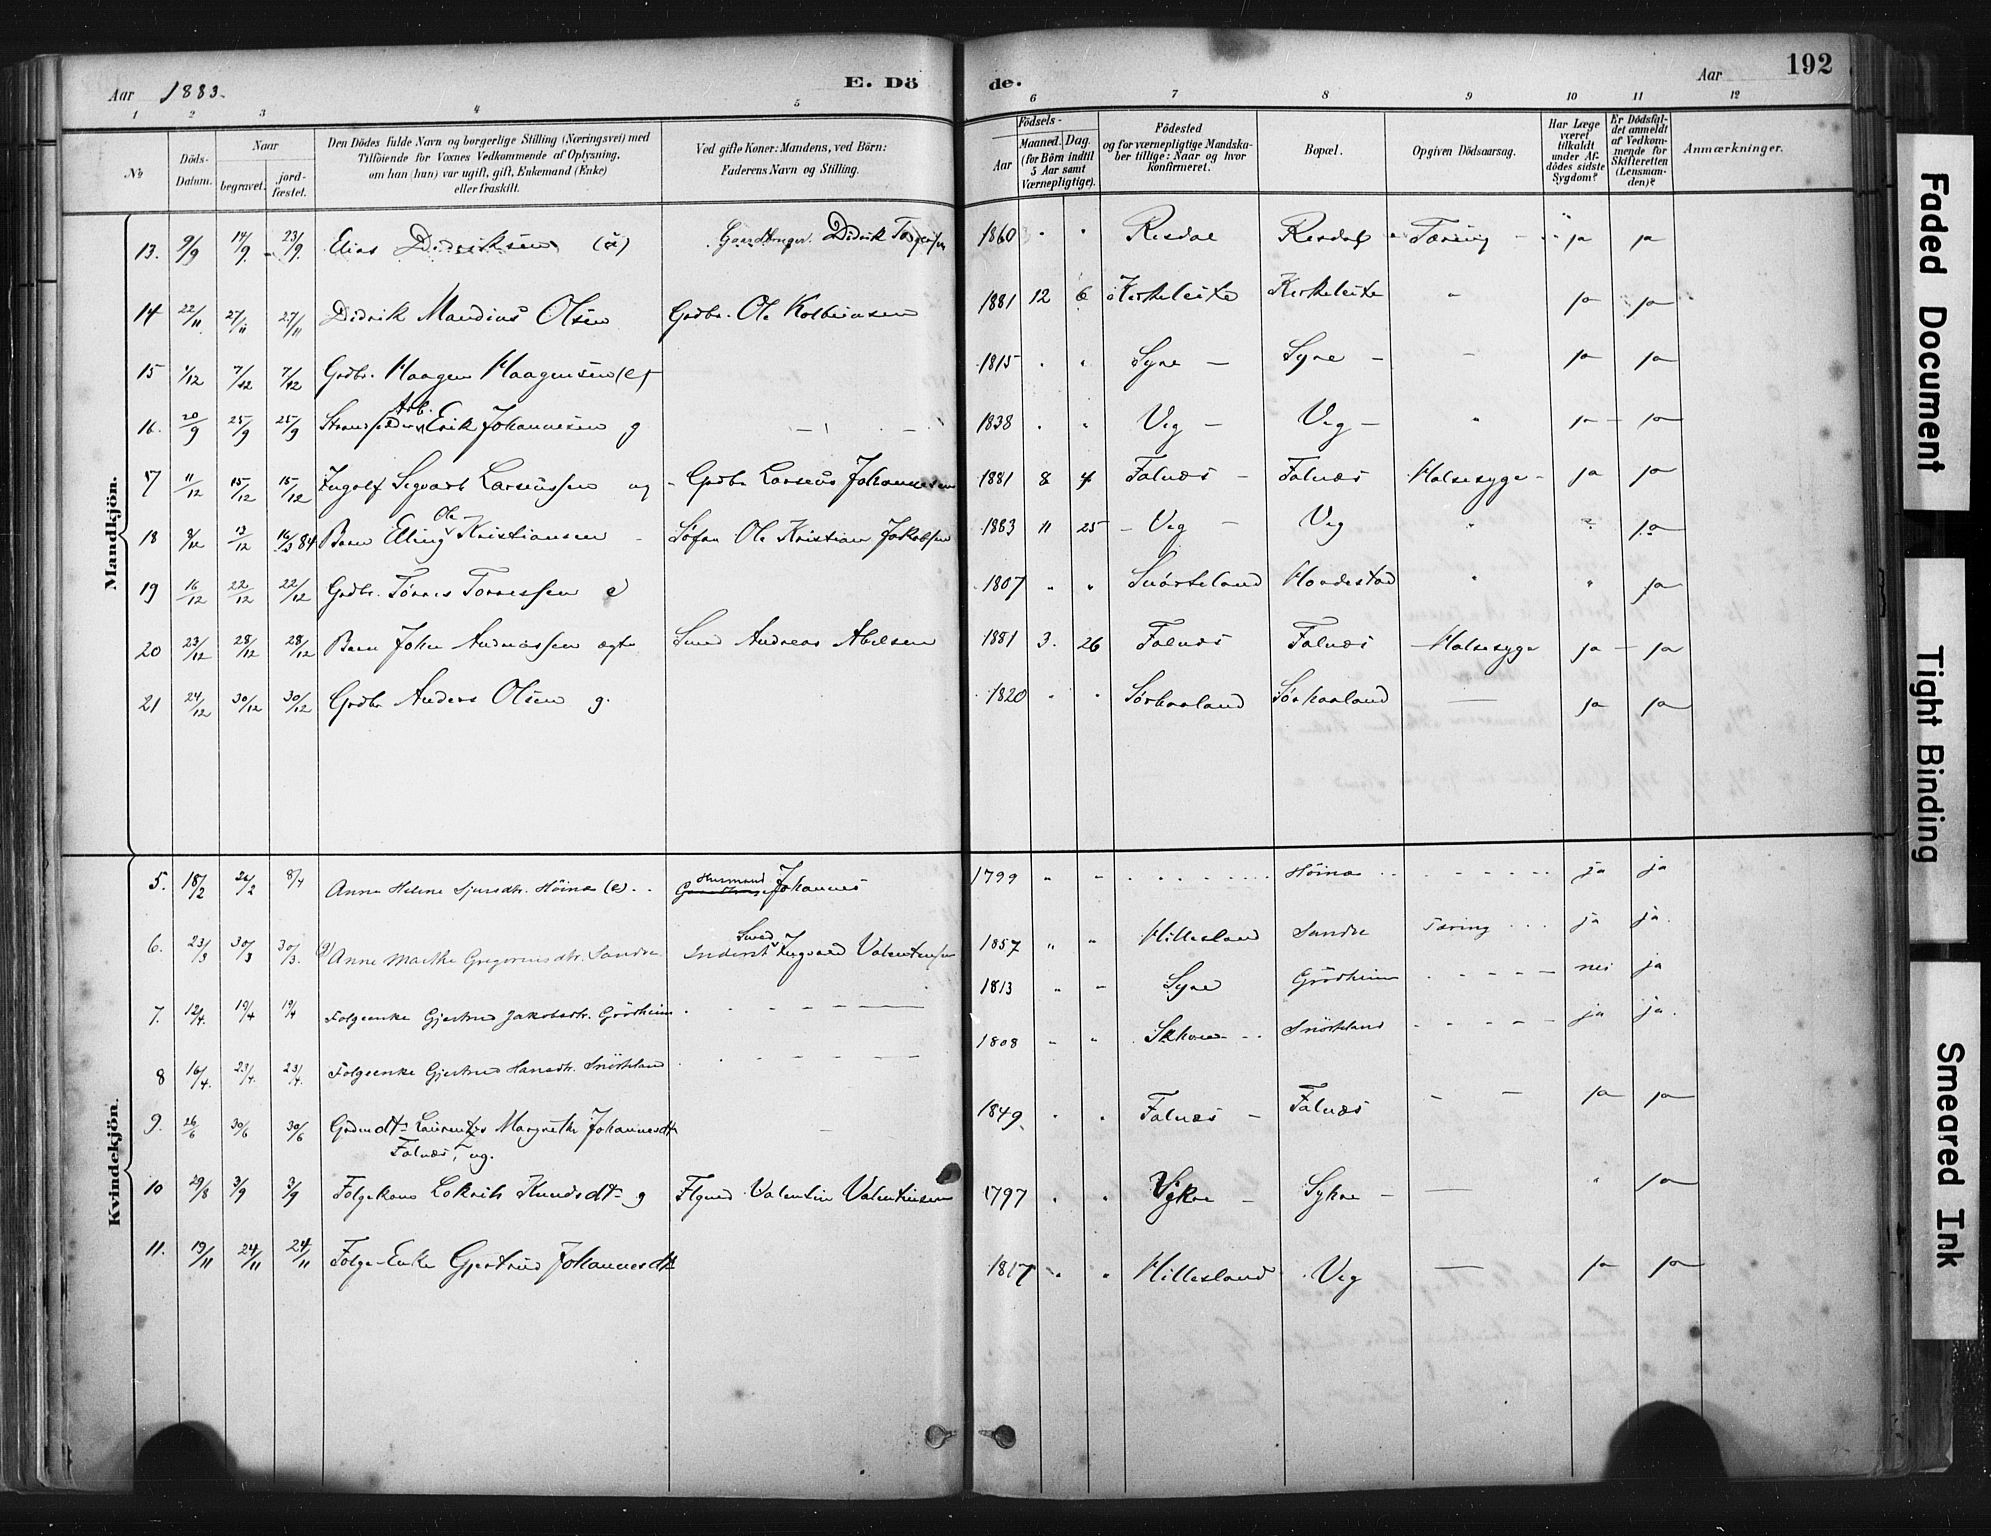 Aar 1883.
E. Døde.
Aar
192
1 2 3 4 5 6 7 8 9 10 11 12
No
Döds-Datum.
Naar
begravet.
jord-fæstet.
Den Dödes fulde Navn og borgerlige Stilling (Næringsvei) med
Tilföiende for Voxnes Vedkommende af Oplysning,
om han (hun) var ugift, gift, Enkemand (Enke)
eller fraskilt.
Ved gifte Koner: Mandens, ved Börn:
Faderens Navn og Stilling.
Födsels-
Aar
Maaned. Dag.
(for Börn indtil
5 Aar samt
Værnepligtige).
Födested
og for værnepligtige Mandska-
ber tillige: Naar og hvor
konfirmeret.
Bopæl.
Opgiven Dödsaarsag.
Har Læge
været
tilkaldt
under Af-
dödes sidste
Sygdom?
Er Dödsfal-
det anmeldt
af Vedkom-
mende for
Skifteretten
(Lensman-
den)?
Anmærkninger.
Mandkjön.
13. 9/9 14/9 23/9 Elias Didriksen (ä) Didrik 1860 " " Risdal Risdal Tæring ja ja
14 22/11 27/11 27/11 Didrik Mandius Olsen Grdbr. Ole Kolbeinsen 1881 12 6 Kirkeleite Kirkeleite " ja ja
15 1/12 7/12 7/12 Grdbr. Haagen Haagensen (e) 1815 " " Syre - Syre - - ja ja
16. 20/9 25/9 25/9 Arb. Erik Johannesen g 1838 " " Veg - Veg - " ja - ja
17 11/12 15/12 15/12 Ingolf Segvart Larsenssen ug - Grdbr Larsens Johannesen 1881 8 4 Falnæs - Falnæs Halsesyge - ja ja
18 8/12 13/12 16/3 84 Barn Elling Ole Kristiansen - Søfar. Ole Kristian Jakobsen 1883 11 25 - Veg - Veg " " ja
19 16/12 22/12 22/12 Grdbr. Tørres Torressen e 1807 " " Snørteland Hordestad " " ja
20 23/12 28/12 28/12 Barn John Andreassen ægte Smed Andreas Abelsen 1881 3. 26 Falnæs Falnæs Halsesyge ja - ja
21 24/12 30/12 30/12 Grdbr Anders Olsen g. 1820 " " Sørhaaland Sørhaaland - ja ja
Kvindekjön.
5. 18/2 26/2 8/4 Anne Helene Sjursdtr. Höinæs (e). . Husmand Johannes 1799 " " Höinæs ja ja
6. 23/3 30/3 30/3. g) Anne Marthe Gregoriusdtr. Sandve Inderst Smed Ingvard Valentinsen 1857 " " Hillesland Sandve Tæring . . . ja ja.
7. 12/4. 19/4 19/4 Folgeenke Gjertrud Jakobsdtr. Grödheim 1813 " " Syre Grödheim nei ja
8 16/4. 23/4. 23/4. Folgeenke Gjertrud Hansdtr. Snörteland 1808 " " Snörteland ja ja.
9. 26/6 30/6 30/6 Grdmdtr Laurentze Margrethe Johannesdtr
Falnæs, ug. 1849. " " Falnæs - Falnæs - - ja ja
10 29/8 3/9 3/9 Folgekone Lokrits Knudsdtr g Flgmd Valentin Valentinsen 1797 " " Sykve - Sykve - - " ja
11. 19/11 24/11 24/11 Folge-Enke Gjertrud Johannesdtr 1817 " " Hillesland Veg - ja ja
Faded Document
Tight Binding
Smeared Ink